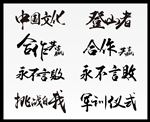 中国文化 登山者
合作共赢 合作共赢
永不言败 永不言败
挑战自我 军训仪式